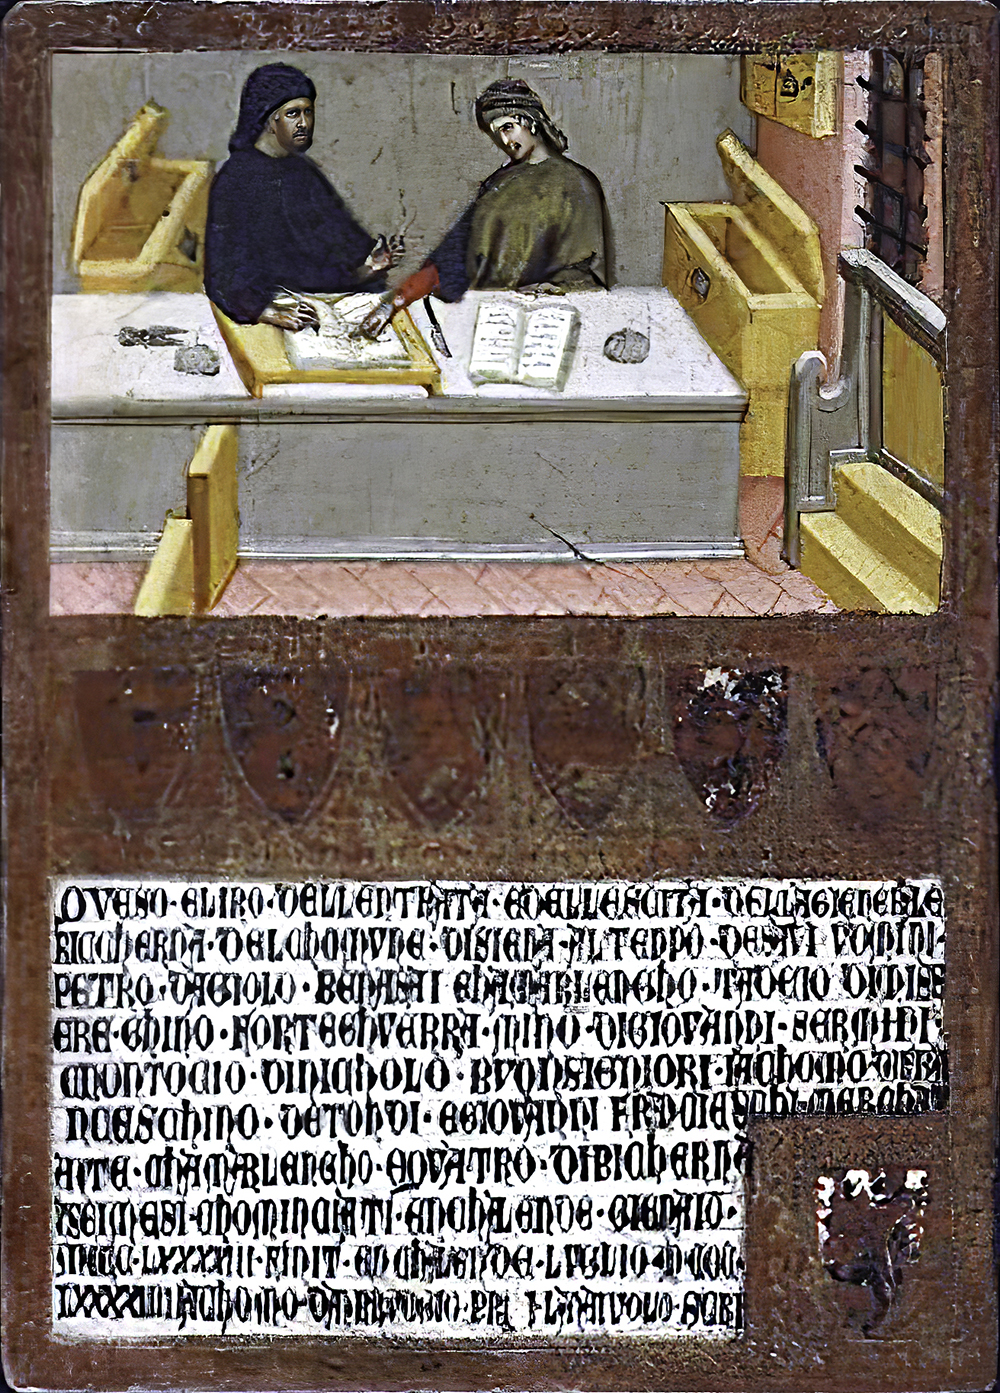 QVESO · ELIRO · DELLENTRATA · EDELLESCITA · DELLAGIENERALE
BICCHERNA · DELCHOMVNE · DISIENA · ALTENPO · DESAVI VOMINI ·
PETRO · DAGIOLO · BENASAI CHAMARLENGHO · TADEIO DIDISS
ERE · GHINO · FORTEGHVERRA · MINO · DIGIOVANNI · SERMINI ·
MONTOCIO · DINICHOLO · BVONSIGNIORI · IACHOMO · DIFRA
NCESCHINO · DETONDI · EGIOVANNI FRANCIESCHI · MERCHAT
ANTE · CHAMARLENGHO · AQVATRO · DIBICHERNA
SEIMESI · CHOMINCIATI · ENCHALENDE · GIENAIO ·
MCCC · LXXXXIII · FINIT · ENCHALENDE · LVGLIO · MCCC ·
LXXXXIIII IACHOMO